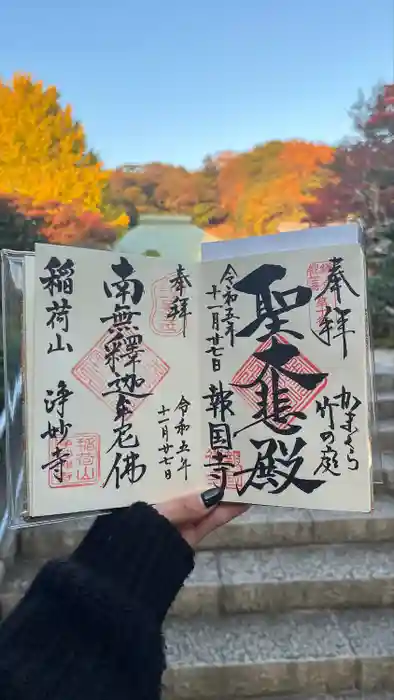 奉拝
かまくら
竹の庭
聖大悲殿
令和五年
十一月廿七日
報国寺
奉拝
令和五年
十一月廿七日
南無釋迦牟尼佛
稲荷山
浄妙寺